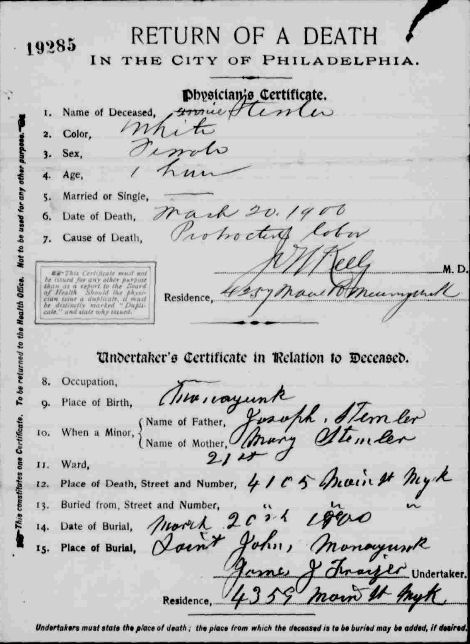 19285
RETURN OF A DEATH
IN THE CITY OF PHILADELPHIA.
Physician's Certificate.
1. Name of Deceased, Annie Stemler
2. Color, White
3. Sex, Female
4. Age, 1 hour
5. Married or Single, ——
6. Date of Death, March 20. 1900
7. Cause of Death, Protracted labor
Keely M. D.
This Certificate must not
be issued for any other purpose
than as a report to the Board
of Health. Should the physi-
cian issue a duplicate, it must
be distinctly marked "Dupli-
cate," and state why issued.
Residence, 4257 Main St Manayunk
Undertaker's Certificate in Relation to Deceased.
8. Occupation,
9. Place of Birth, Manayunk
10. When a Minor, { Name of Father, Joseph Stemler
Name of Mother, Mary Stemler
11. Ward, 21st
12. Place of Death, Street and Number, 4105 Main St Myk
13. Buried from, Street and Number, " " "
14. Date of Burial, March 20th 1900
15. Place of Burial, Saint John, Manayunk
James J Frazier Undertaker.
Residence, 4359 Main St Myk
Undertakers must state the place of death; the place from which the deceased is to be buried may be added, if desired.
This constitutes one Certificate. To be returned to the Health Office. Not to be used for any other purpose.